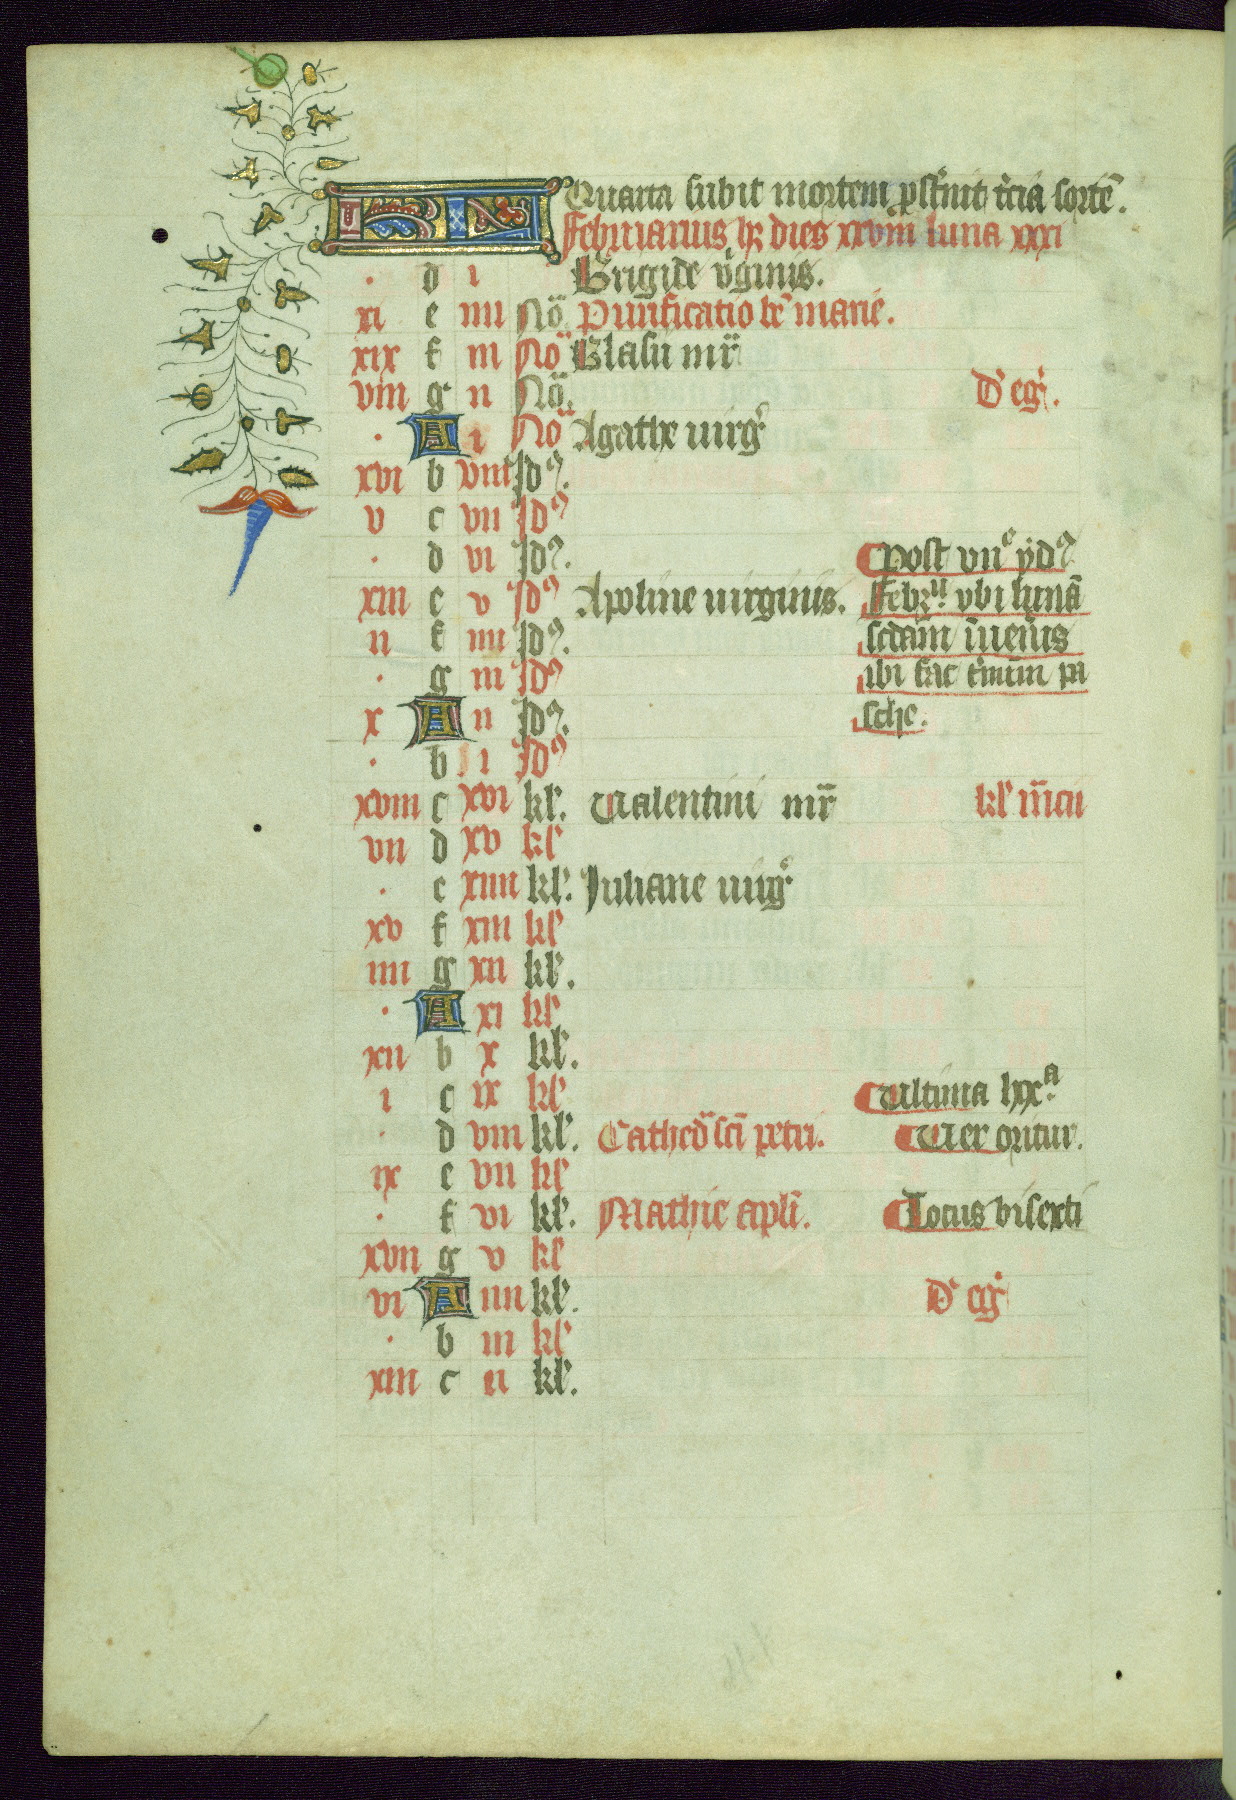 Quarta subit mortem p̄st̄nit t̄cia sortē.
Februarius hȝ dies xxviii luna xxxi
. d i Brigide v̄ginis.
xi e iiii Nō Purificatio bē marie.
xix f iii Nō Blasii mr̄
viii g ii Nō. D' eg'.
. A i Nō Agathe uirg̊
xvi b viii Idꝰ.
v c vii Idꝰ
. d vi Idꝰ. Post vii͛ ydꝰ
xiii e v Idꝰ Apoline uirginis. Febr. vbi lunā
ii f iiii Idꝰ. scdam īuenis
. g iii Idꝰ ibi fac t̄minū pa
x A ii Idꝰ. sche.
. b i Idꝰ
xviii c xvi kl'. Valentini mr̄ kl' m̄cii
vii d xv kl'
. e xiiii kl'. Iuliane uirg̊
xv f xiii kl'
iiii g xii kl'.
. A xi kl'
xii b x kl'.
i c ix kl' Ultima lxxᵃ.
. d viii kl'. Cathed̄ sc̄i petri. Uer oritur.
ix e vii kl'
. f vi kl'. Mathie apl̄i. Locus bisexti
xvii g v kl'
vi A iiii kl'. D' eg'
. b iii kl'
xiii c ii kl'.